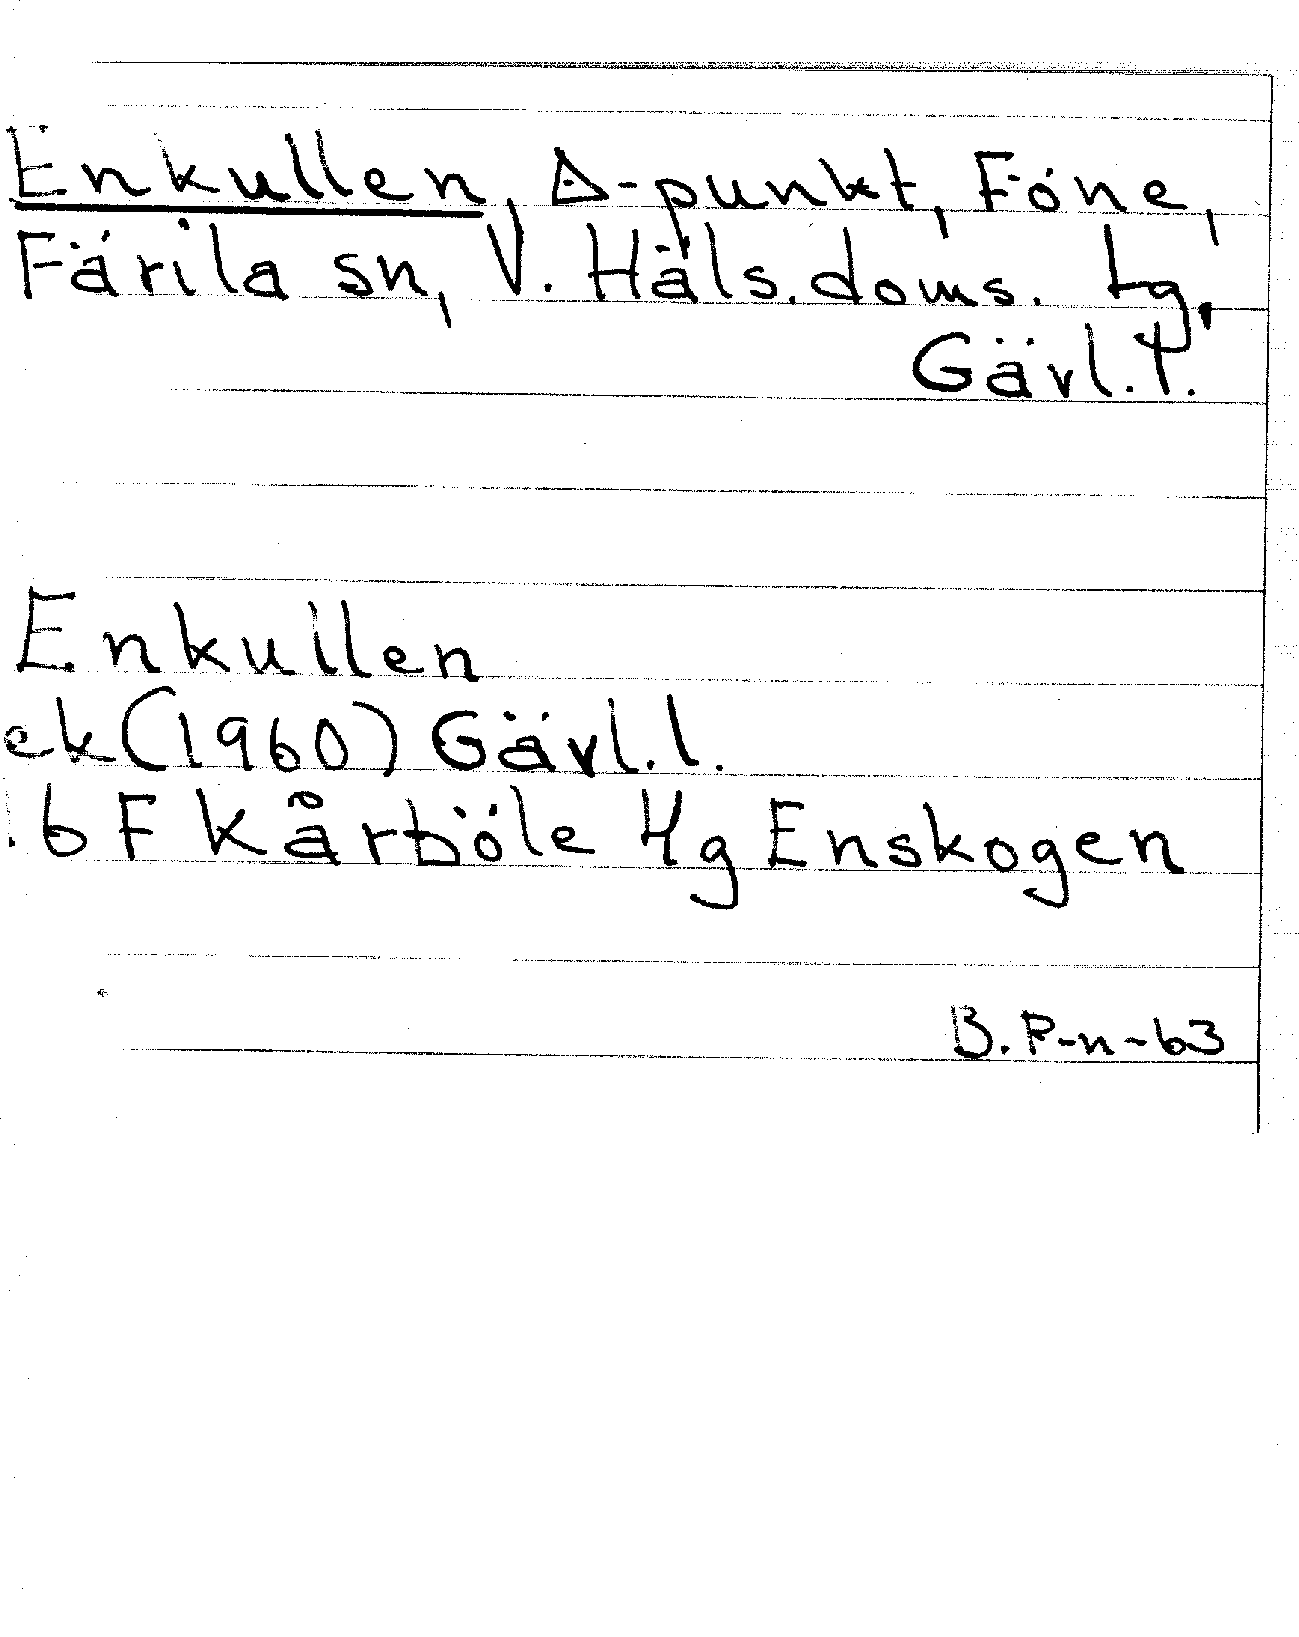 Enkullen, △-punkt, Föne,
Färila sn, V. Häls. doms. Lg,
Gävl. l.
Enkullen
ek (1960) Gävl. l.
16 F Kårböle 4g Enskogen
B. P-n-63